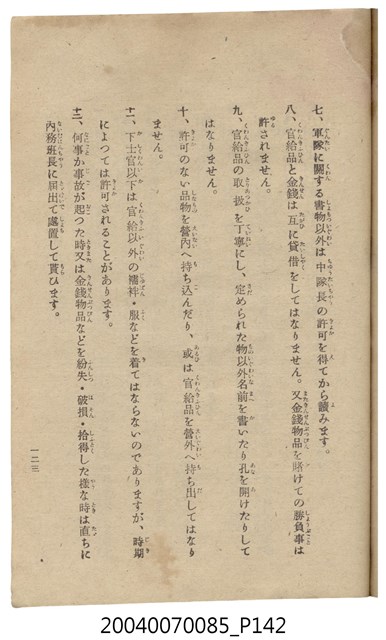 七、軍隊に關する書物以外は中隊長の許可を得てから讀みます。
八、官給品と金錢は互に貸借をしてはなりません。又金錢物品を賭けての勝負事は
許されません。
九、官給品の取扱を丁寧にし、定められた物以外名前を書いたり孔を開けたりして
はなりません。
十、許可のない品物を營內へ持ち込んだり、或は官給品を營外へ持ち出してはなり
ません。
十一、下士官以下は官給以外の襦袢・服などを着てはならないのでありますが、時期
によつては許可されることがあります。
十二、何事か事故が起つた時又は金錢物品などを紛失・破損・拾得した樣な時は直ちに
內務班長に屆出て處置して貰ひます。
一二三
20040070085_P142